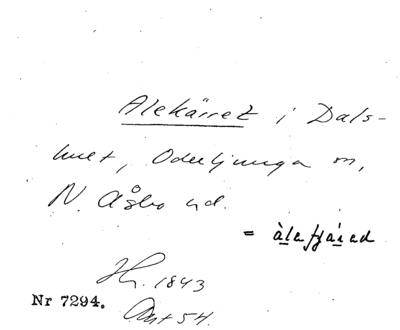 Alekärret i Dals-
hult, Oderljunga sn,
N. Åsbo hd.
= àlafjáred
H. 1843
Nr 7294.
Ant 54.